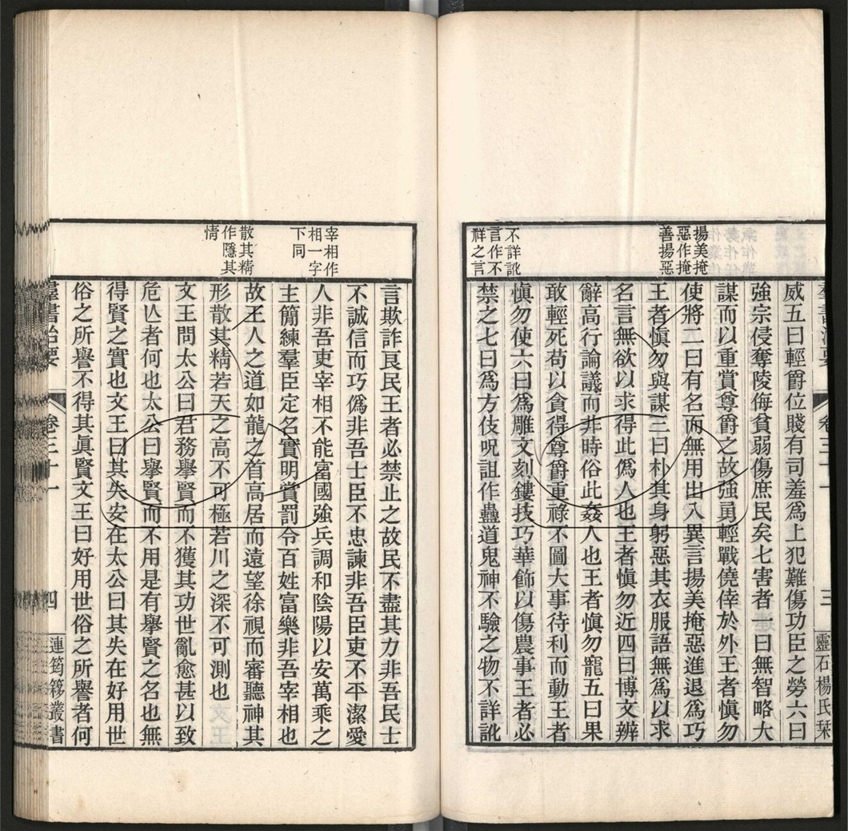 揚美掩
惡作掩
善揚惡
不詳訛
言作不
祥之言
威五曰輕爵位賤有司羞爲上犯難傷功臣之勞六曰
強宗侵奪陵侮貧弱傷庶民矣七害者一曰無智略大
謀而以重賞尊爵之故強勇輕戰僥倖於外王者愼勿
使將二曰有名而無用出入異言揚美掩惡進退爲巧
王者愼勿與謀三曰朴其身躬惡其衣服語無爲以求
名言無欲以求得此僞人也王者愼勿近四曰博文辨
辭高行論議而非時俗此姦人也王者愼勿寵五曰果
敢輕死苟以貪得尊爵重祿不圖大事待利而動王者
愼勿使六曰爲雕文刻鏤技巧華飾以傷農事王者必
禁之七曰爲方伎呪詛作蠱道鬼神不驗之物不詳訛
羣書治要
卷三十一
三
靈石楊氏栞
宰相作
相一字
下同
散其精
作隱其
情
言欺詐良民王者必禁止之故民不盡其力非吾民士
不誠信而巧僞非吾士臣不忠諫非吾臣吏不平潔愛
人非吾吏宰相不能富國強兵調和陰陽以安萬乘之
主簡練羣臣定名實明賞罰令百姓富樂非吾宰相也
故王人之道如龍之首高居而遠望徐視而審聽神其
形散其精若天之高不可極若川之深不可測也
文王問太公曰君務擧賢而不獲其功世亂愈甚以致
危亾者何也太公曰擧賢而不用是有擧賢之名也無
得賢之實也文王曰其失安在太公曰其失在好用世
俗之所譽不得其眞賢文王曰好用世俗之所譽者何
羣書治要
卷三十一
四
連筠簃叢書